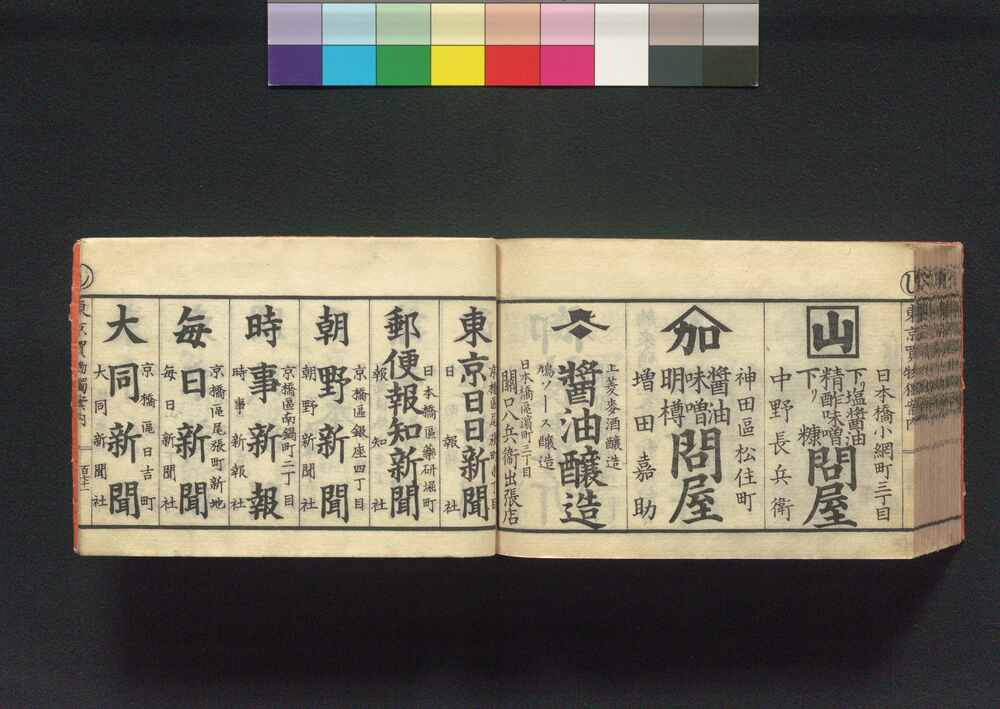 日本橋小網町三丁目
山
下り塩醤油
精酢味噌
下り糠
問屋
中野長兵衛
神田區松住町
加
醤油
味噌
明樽
問屋
増田嘉助
上菱麥酒釀造
醤油釀造
鳩ソース釀造
日本橋區濱町二丁目
關口八兵衞出張店
東京日日新聞
日報社
日本橋區藥研堀町
郵便報知新聞
報知社
京橋區銀座四丁目
朝野新聞
朝野新聞社
京橋區南鍋町二丁目
時事新報
時事新報社
京橋區尾張町新地
毎日新聞
毎日新聞社
京橋區日吉町
大同新聞
大同新聞社